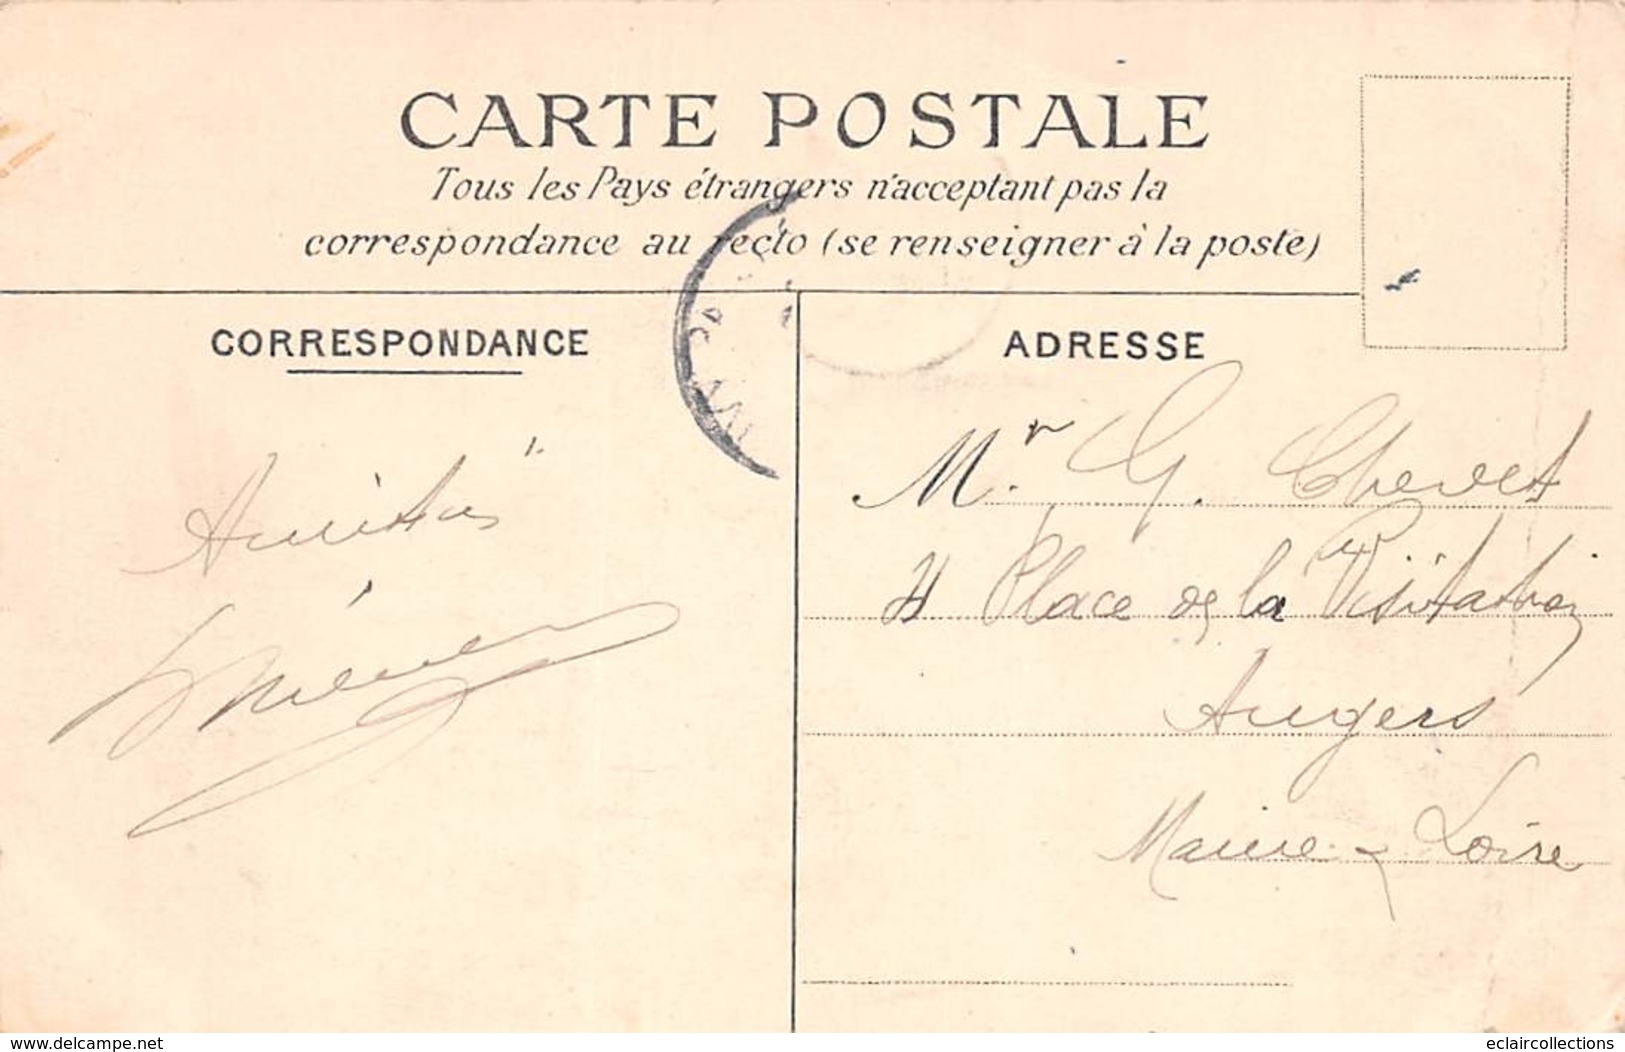 CARTE POSTALE
Tous les Pays étrangers n'acceptant pas la
correspondance au recto (se renseigner à la poste)
CORRESPONDANCE
ADRESSE
Amitiés
Mr. G. Chevet
4 Place de la Visitation
Angers
Maine & Loire
www.delcampe.net
eclaircollections